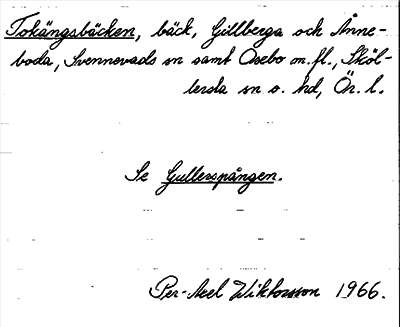 Tokängsbäcken, bäck, Gillberga och Ånne-
boda, Svennevads sn samt Åsebo m.fl., Sköl-
lersta sn o. hd, Ör. l.
Se Gullerspången.
Per-Axel Wiktorsson 1966.